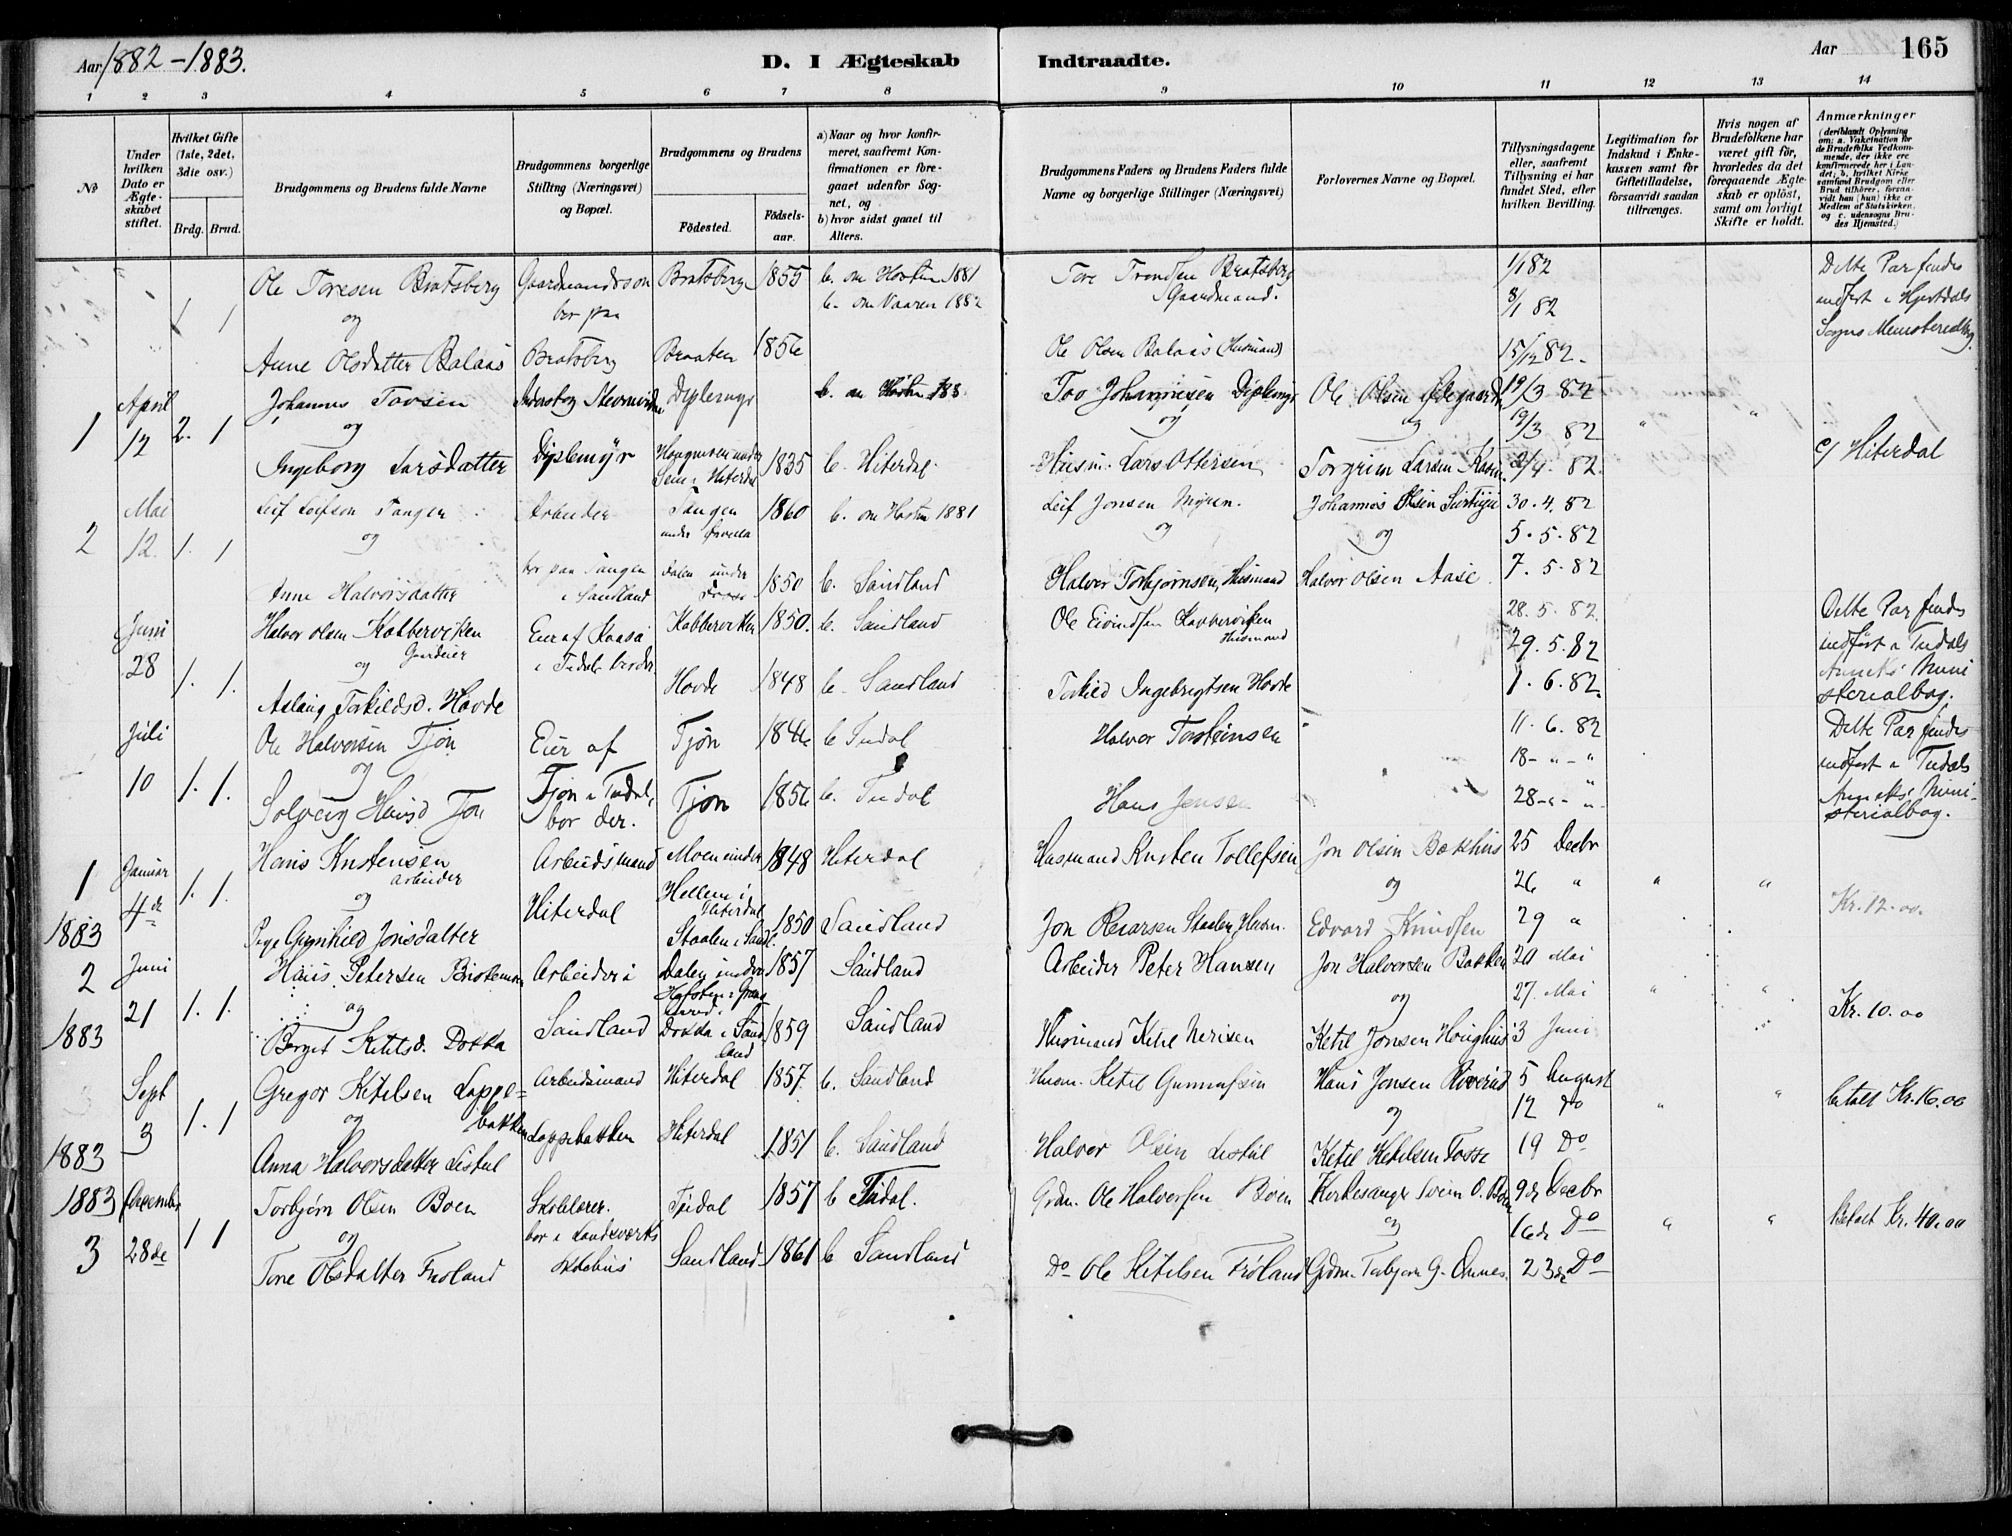 Aar 1882-1883.
D. I Ægteskab Indtraadte.
Aar 165
1 2 3 4 5 6 7 8 9 10 11 12 13 14
No
Under hvilken Dato er Ægteskabet stiftet.
Hvilket Gifte (1ste, 2det, 3die osv.)
Brdg. Brud.
Brudgommens og Brudens fulde Navne
Brudgommens borgerlige Stilling (Næringsvei) og Bopæl.
Brudgommens og Brudens
Födested. Födsels-aar.
a) Naar og hvor konfirmeret, saafremt Konfirmationen er foregaaet udenfor Sognet, og
b) hvor sidst gaaet til Alters.
Brudgommens Faders og Brudens Faders fulde Navne og borgerlige Stillinger (Næringsvei)
Forlovernes Navne og Bopæl.
Tillysningsdagene eller, saafremt Tillysning ei har fundet Sted, efter hvilken Bevilling.
Legitimation for Indskud i Enkekassen samt for Giftetilladelse, forsaavidt saadan tiltrænges.
Hvis nogen af Brudefolkene har været gift för, hvorledes da det foregaaende Ægteskab er oplöst, samt om lovligt Skifte er holdt.
Anmærkninger
(deriblandt Oplysning om: a. Vakcination for de Brudefolks Vedkommende, der ikke ere konfirmerede her i Landet; b. hvilket Kirkesamfund Brudgom eller Brud tilhörer, forsaavidt han (hun) ikke er Medlem af Statskirken, og c. udensogns Brudes Hjemsted.)
1 1 Ole Toresen Bratsberg Gaardmandsson Bratsberg 1855 b. om Hosten 1881 Tore Trondsen Bratsberg 1/1 82 Dette Par findes
og bor paa b. om Vaaren 1882 Gaardmand. 8/1 82 indført i Hjertdals
Anne Olsdatter Balaas Bratsberg Braaten 1856 Ole Olsen Balaas Husmand 15/1 82. Sogns Ministerialbog.
April Johannes Tovsen Diplemyr Tov Johannesen Diplemyr Ole Olsen Ødegaard 12/3 82
1 2. 1 og og og 19/3 82 " "
Ingeborg Larsdatter Diplemyr 1835 b. Hiterdal. Husm. Lars Ottersen Torgrim Larsen 2/4 82. c/ Hiterdal
Mai Leif Leifson Tangen Arbeider Tangen 1860 b. om Hosten 1881 Leif Jonsen Myren. Johannes Olsen 30. 4. 82
2 12. 1. 1 og under og og 5. 5. 82
Anne Halvorsdatter bor paa Tangen i Sandland Dalen under 1850 b. Sandland Halvor Torbjørnsen, Husmand Halvor Olsen Aase. 7. 5. 82
Juni Halvor Olsen Kobbervikken Eier af Kaasa Kobbervikken 1850. b. Sandland Ole Eivindsen Kobbervikken Husmand 28. 5. 82. Dette Par findes
28 1. 1. og Gardeier i Tudal bor der 29. 5. 82 indført i Tudals
Aslaug Torkildsd. Hovde Hovde 1848 b. Sandland Torkild Ingebrigtsen Hovde 1. 6. 82. Anneks' Ministerialbog.
Juli Ole Halvorsen Tjøn Eier af Tjøn b Tudal Halvor Torsteinsen 11. 6. 82 Dette Par findes
10 1. 1. og Tjøn i Tudal, 18 - " - " indført i Tudals
Solveig Hansd Tjøn bor der. Tjøn 1856 b. Tudal Hans Jensen 28 - " - " Anneks' Ministerialbog.
1 Januar Hans Knutensen Arbeidsmand Moen under 1848 Hiterdal Husmand Knuten Tollefsen Jon Olsen Bakhus 25 Decbr
4de 1. 1. arbeider og Hiterdal i Hiterdal og 26 " " "
1883 Gunhild Jonsdatter Staalen i Sandl. 1850 Sandland Jon Staalen Husm. Edvard Knudsen 29 " Kr. 12.00.
2 Juni Hans Petersen Arbeider i Dalen under 1857 Sandland Arbeider Peter Hansen Jon Halvorsen Bakken 20 Mai
21 1. 1. og og 27. Mai " "
1883 Berget Ketilsd. Dokka Sandland Dokka i Sandland 1859 Sandland Husmand Ketil Ketil Jonsen Houghus 3 Juni Kr. 10.00
Sept Gregor Ketelsen Loppebakken Arbeidsmand Hiterdal 1857. b. Sandland Husm. Ketil Gunnufsen Hans Jonsen 5 August
3 1. 1 og og 12 do " " betalt Kr. 16.00
1883 Anna Halvorsdatter Listul Loppebakken Hiterdal 1851 b. Sandland Halvor Olsen Listul Ketil 19 Do
1883 December Torbjørn Olsen Boen Skolelærer. Tudal 1857 b Tudal. Grdm. Ole Halvorsen Boen Kirkesanger Svein O. Boen 9de Decbr
3 28de 1 1 og bor i Landsværks og 16de Do " " Betalt Kr. 40.00
Tone Olsdatter Frøland Skolehus Sandland 1861 b Sandland Do Ole Ketelsen Frøland Grdm. Torbjørn G. Omnes. 23de Do